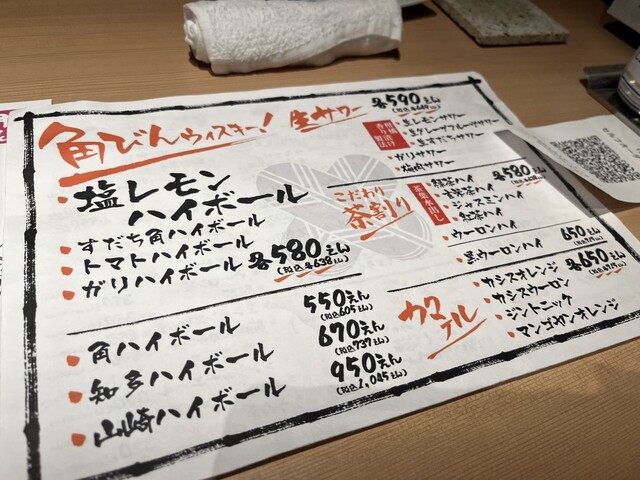 角びんウィスキー!
・塩レモン
ハイボール
・すだち角ハイボール
・トマトハイボール
・ガリハイボール 各580えん
(税込各638えん)
・角ハイボール 550えん
(税込605えん)
・知多ハイボール 670えん
(税込737えん)
・山崎ハイボール 950えん
(税込1,045えん)
生サワー 各590えん
(税込各649えん)
・生レモンサワー
・生グレープフルーツサワー
・生すだちサワー
・ガリサワー
・梅肉サワー
こだわり
茶割り
茶葉水出し
各580えん
・緑茶ハイ
・ジャスミンハイ
・紅茶ハイ
・ウーロンハイ
・黒ウーロンハイ 650えん
カクテル 各650えん
・カシスオレンジ
・カシスウーロン
・ジントニック
・マンゴヤンオレンジ